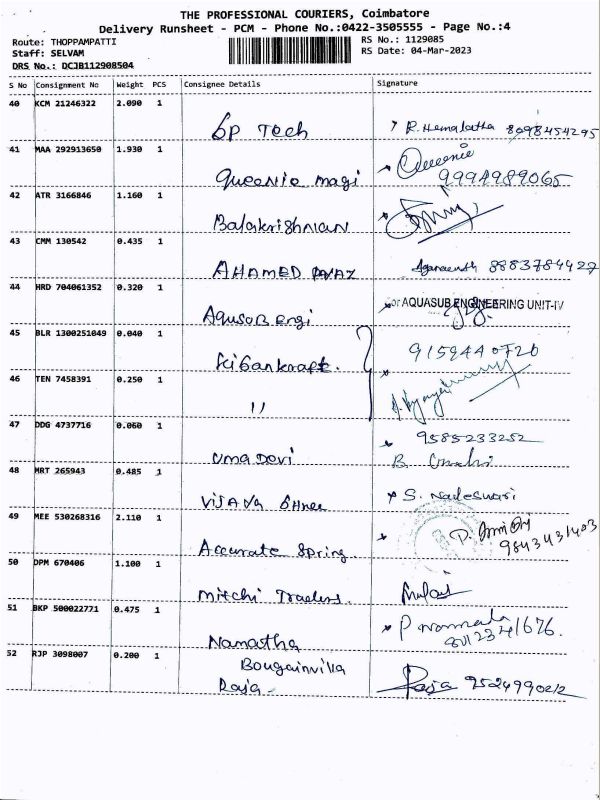 THE PROFESSIONAL COURIERS, Coimbatore
Delivery Runsheet - PCM - Phone No.:0422-3505555 - Page No.:4
Route: THOPPAMPATTI
RS No.: 1129085
Staff: SELVAM
RS Date: 04-Mar-2023
DRS No.: DCJB112908504
S No Consignment No Weight PCS Consignee Details Signature
40 KCM 21246322 2.090 1
SP Tech R. Hemalatha 8098454295
41 MAA 292913650 1.930 1
Queenie magi Queenie
9994989065
42 ATR 3166846 1.160 1
Balakrishnan
43 CMM 130542 0.435 1
AHAMED 8883784427
44 HRD 704061352 0.320 1
Aqusob engi for AQUASUB ENGINEERING UNIT-IV
45 BLR 1300251049 0.040 1
9159440720
46 TEN 7458391 0.250 1
11
47 DDG 4737716 0.060 1
9585233252
Uma Devi B.
48 MRT 265943 0.485 1
Vijaya S. Nadeswari
49 MEE 530268316 2.110 1
Accurate Spring 9843431403
50 DPM 670406 1.100 1
Mitchi Traders.
51 BKP 500022771 0.475 1
Namatha P
52 RJP 3098007 0.200 1
Bougainvilla
Raja Raja